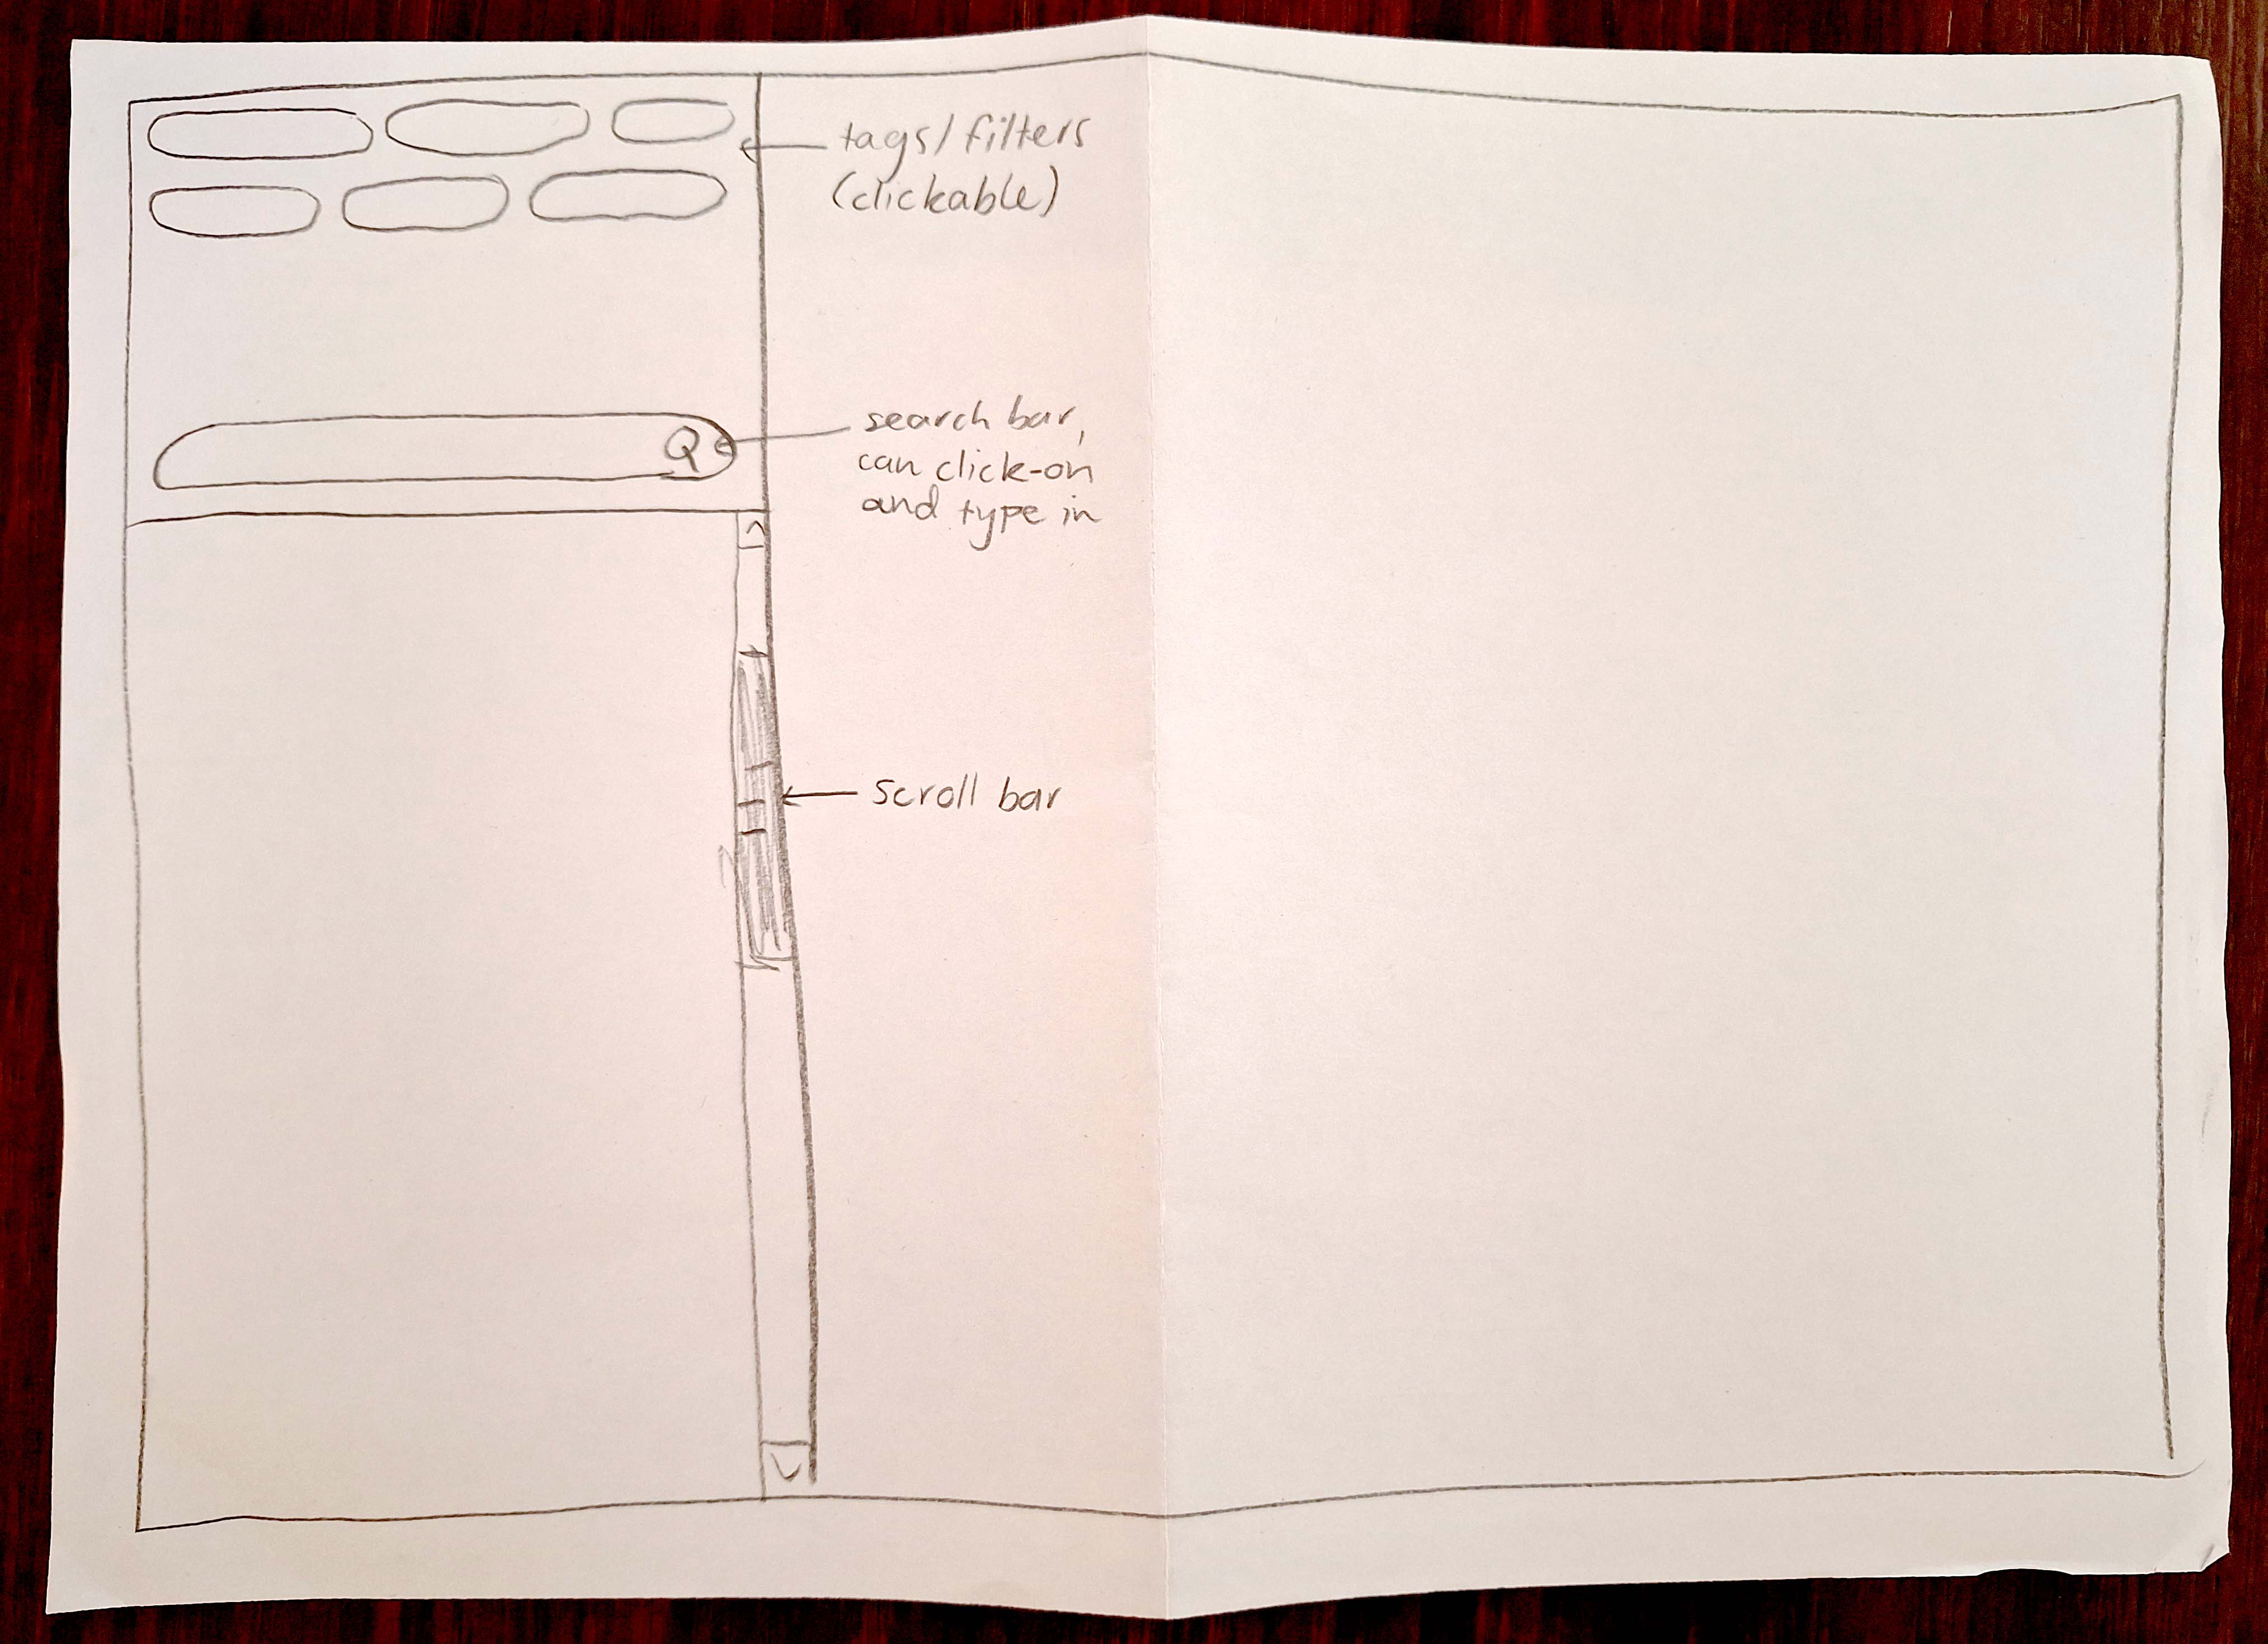 tags/filters
(clickable)
search bar,
can click-on
and type in
scroll bar